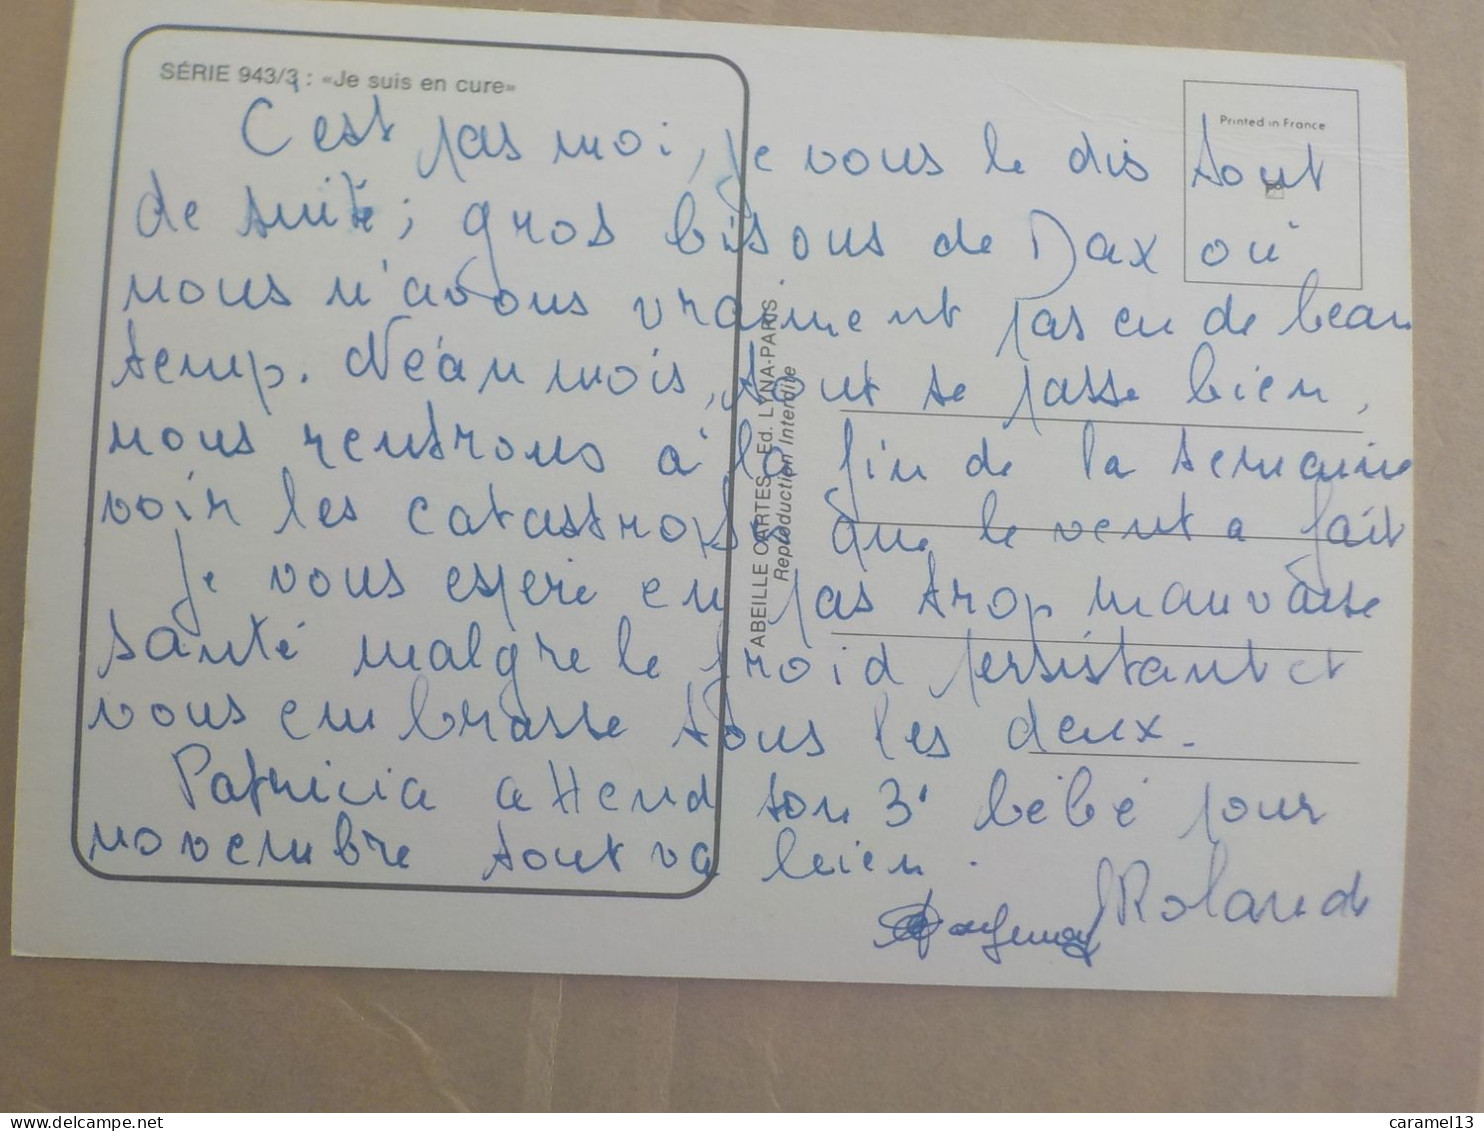 SÉRIE 943/3 : «Je suis en cure»
Printed in France
C'est pas moi, je vous le dis tout
de suite ; gros bisous de Dax où
nous n'avons vraiment pas eu de beau
temp. Néanmois, tout se passe bien,
nous rentrons à la fin de la semaine
voir les catastrophes que le vent a fait
Je vous espère en pas trop mauvaise
santé malgré le froid persistant et
vous embrasse tous les deux.
Patricia attend son 3e bébé pour
novembre tout va bien.
Rolande
ABEILLE CARTES - Ed. LYNA-PARIS
Reproduction Interdite
caramel13